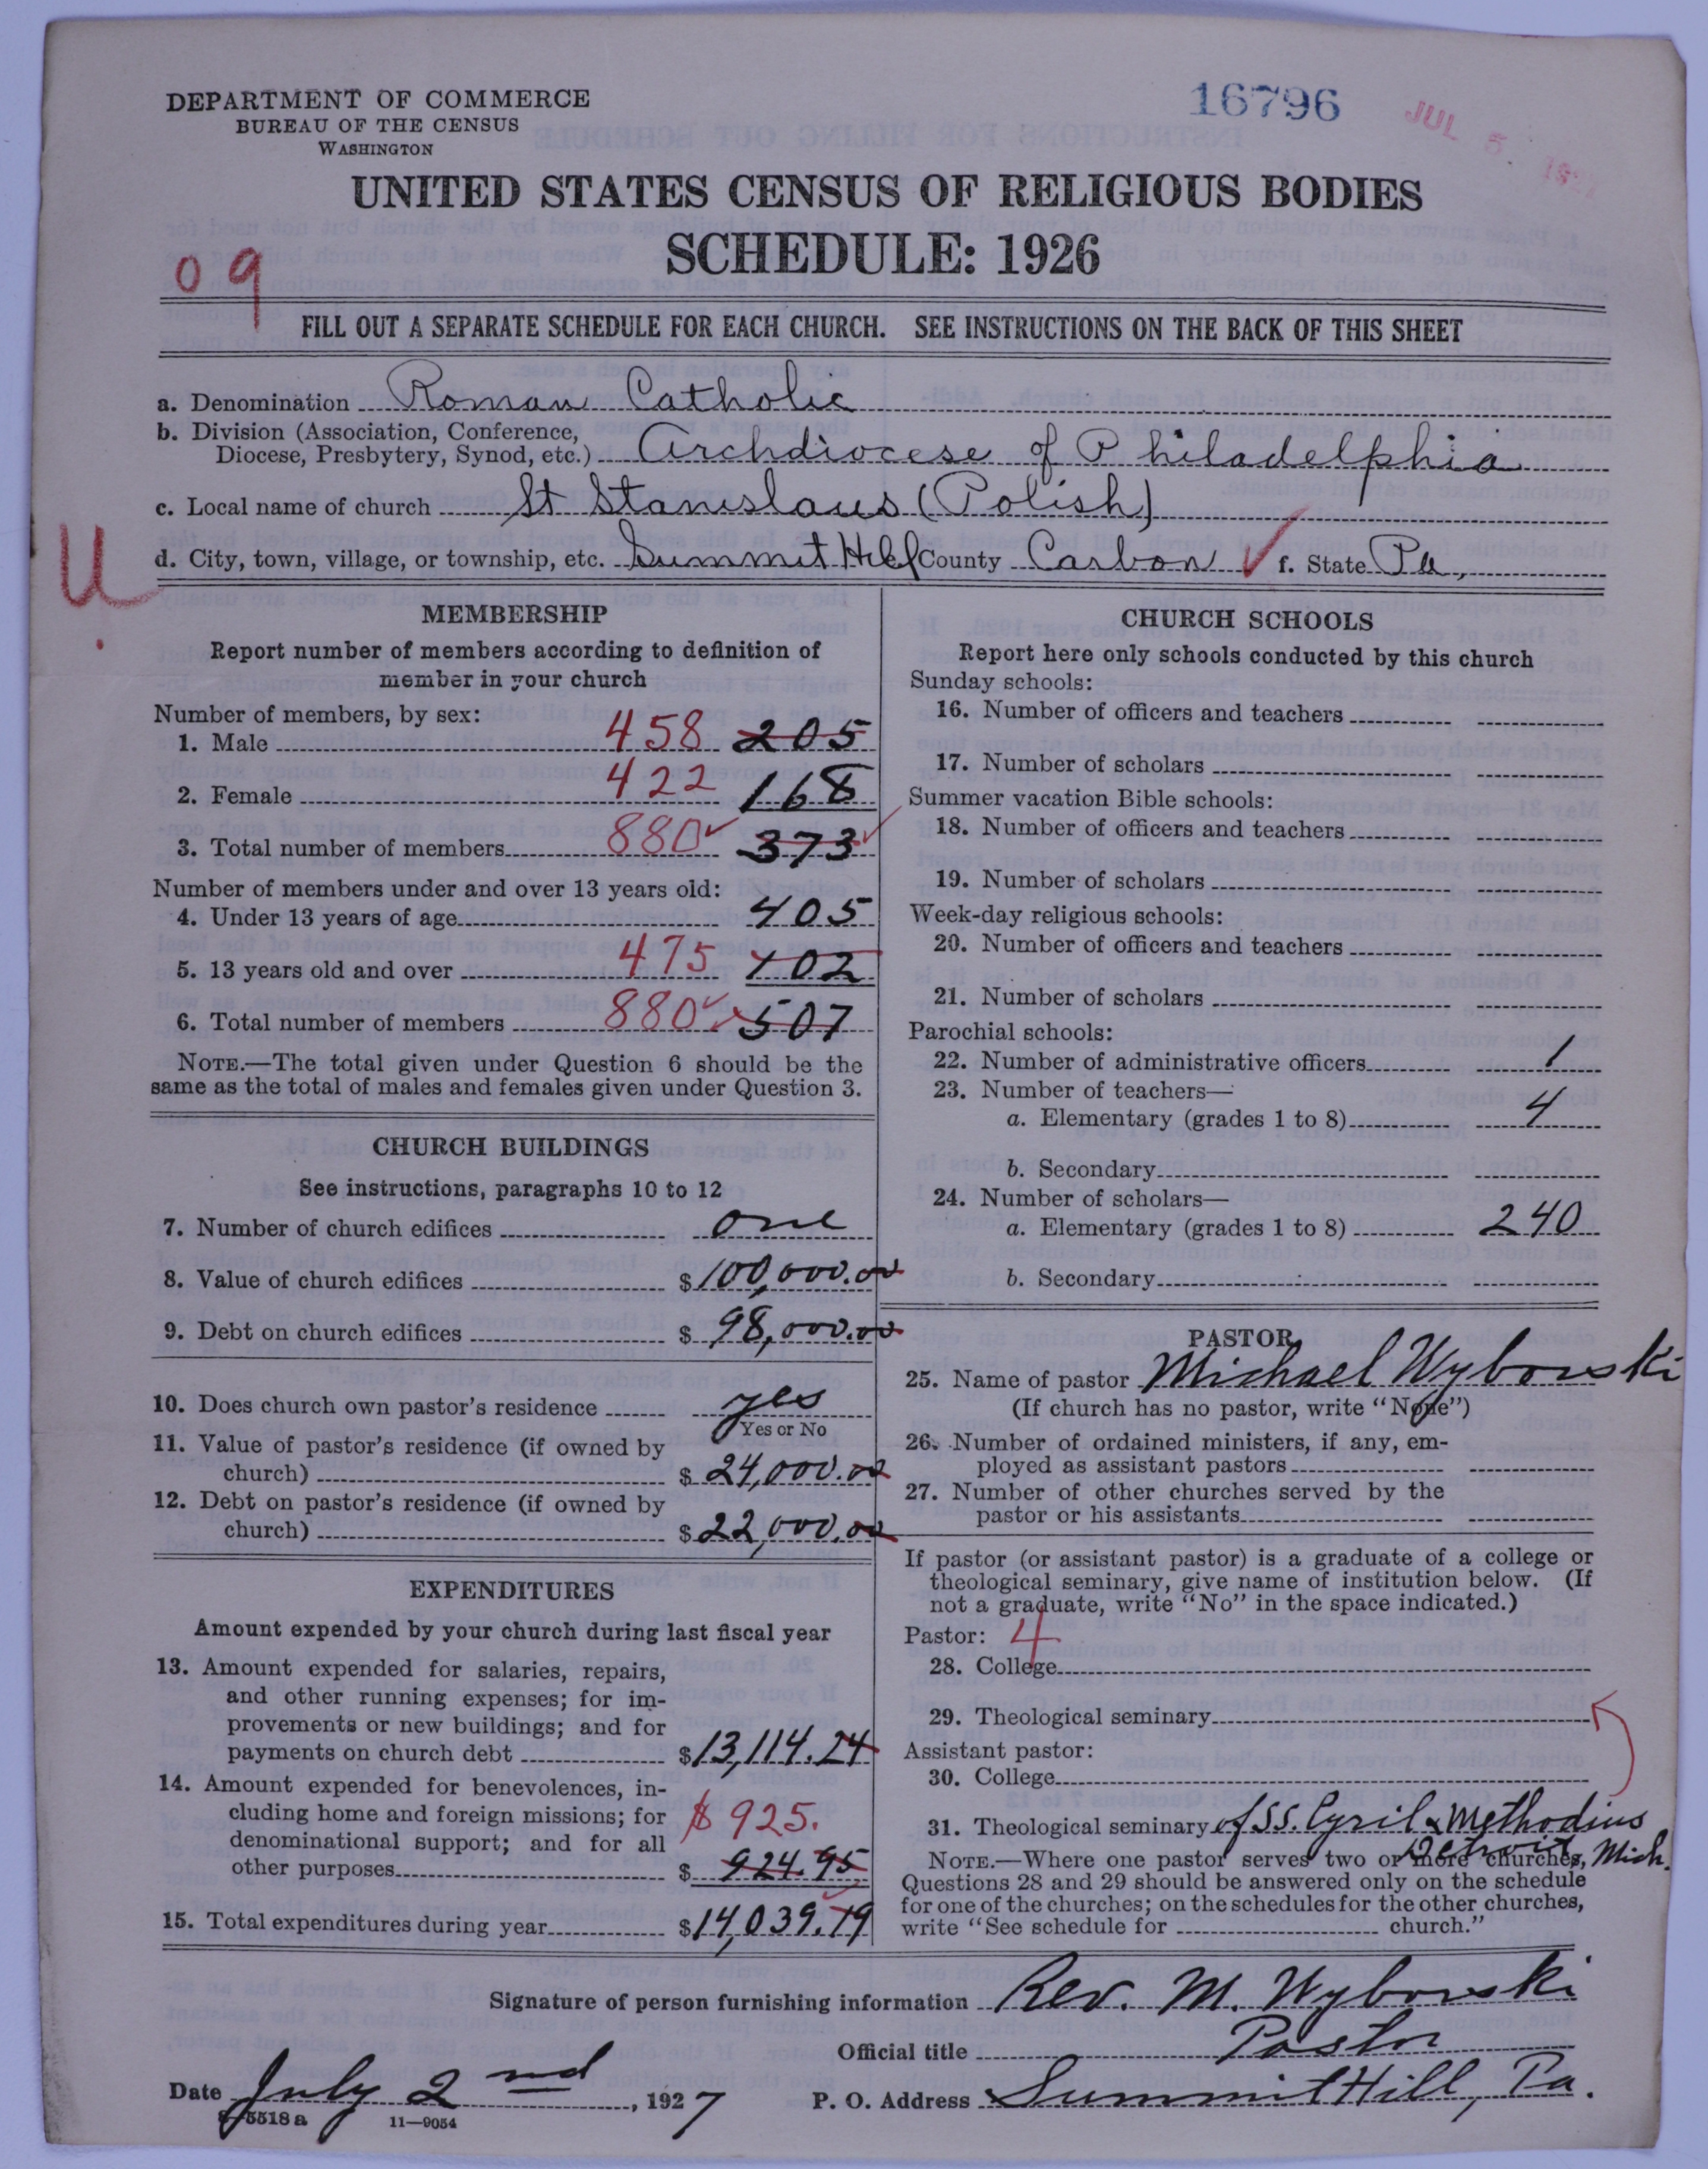 DEPARTMENT OF COMMERCE
BUREAU OF THE CENSUS
WASHINGTON
16796
JUL 5 1927
UNITED STATES CENSUS OF RELIGIOUS BODIES
SCHEDULE: 1926
09
FILL OUT A SEPARATE SCHEDULE FOR EACH CHURCH. SEE INSTRUCTIONS ON THE BACK OF THIS SHEET
a. Denomination Roman Catholic
b. Division (Association, Conference,
Diocese, Presbytery, Synod, etc.) Archdiocese of Philadelphia
c. Local name of church St Stanislaus (Polish)
d. City, town, village, or township, etc. Summit Hill County Carbon ✓ f. State Pa.
U.
MEMBERSHIP
Report number of members according to definition of
member in your church
Number of members, by sex:
1. Male 458 205
2. Female 422 168
3. Total number of members 880 ✓ 373 ✓
Number of members under and over 13 years old:
4. Under 13 years of age 405
5. 13 years old and over 475 102
6. Total number of members 880 ✓ 507
NOTE.—The total given under Question 6 should be the
same as the total of males and females given under Question 3.
CHURCH BUILDINGS
See instructions, paragraphs 10 to 12
7. Number of church edifices one
8. Value of church edifices $100,000.00
9. Debt on church edifices $98,000.00
10. Does church own pastor's residence yes
Yes or No
11. Value of pastor's residence (if owned by
church) $24,000.00
12. Debt on pastor's residence (if owned by
church) $22,000.00
EXPENDITURES
Amount expended by your church during last fiscal year
13. Amount expended for salaries, repairs,
and other running expenses; for im-
provements or new buildings; and for
payments on church debt $13,114.24
14. Amount expended for benevolences, in-
cluding home and foreign missions; for
denominational support; and for all
other purposes $925. $924.95
15. Total expenditures during year $14,039.19
CHURCH SCHOOLS
Report here only schools conducted by this church
Sunday schools:
16. Number of officers and teachers
17. Number of scholars
Summer vacation Bible schools:
18. Number of officers and teachers
19. Number of scholars
Week-day religious schools:
20. Number of officers and teachers
21. Number of scholars
Parochial schools:
22. Number of administrative officers 1
23. Number of teachers—
a. Elementary (grades 1 to 8) 4
b. Secondary
24. Number of scholars—
a. Elementary (grades 1 to 8) 240
b. Secondary
PASTOR
25. Name of pastor Michael Wybowski
(If church has no pastor, write "None")
26. Number of ordained ministers, if any, em-
ployed as assistant pastors
27. Number of other churches served by the
pastor or his assistants
If pastor (or assistant pastor) is a graduate of a college or
theological seminary, give name of institution below. (If
not a graduate, write "No" in the space indicated.)
Pastor: 4
28. College
29. Theological seminary
Assistant pastor:
30. College
31. Theological seminary of SS. Cyril & Methodius
Detroit, Mich.
NOTE.—Where one pastor serves two or more churches,
Questions 28 and 29 should be answered only on the schedule
for one of the churches; on the schedules for the other churches,
write "See schedule for church."
Signature of person furnishing information Rev. M. Wybowski
Official title Pastor
Date July 2nd, 1927 P. O. Address Summit Hill, Pa.
8-5518 a 11—9054